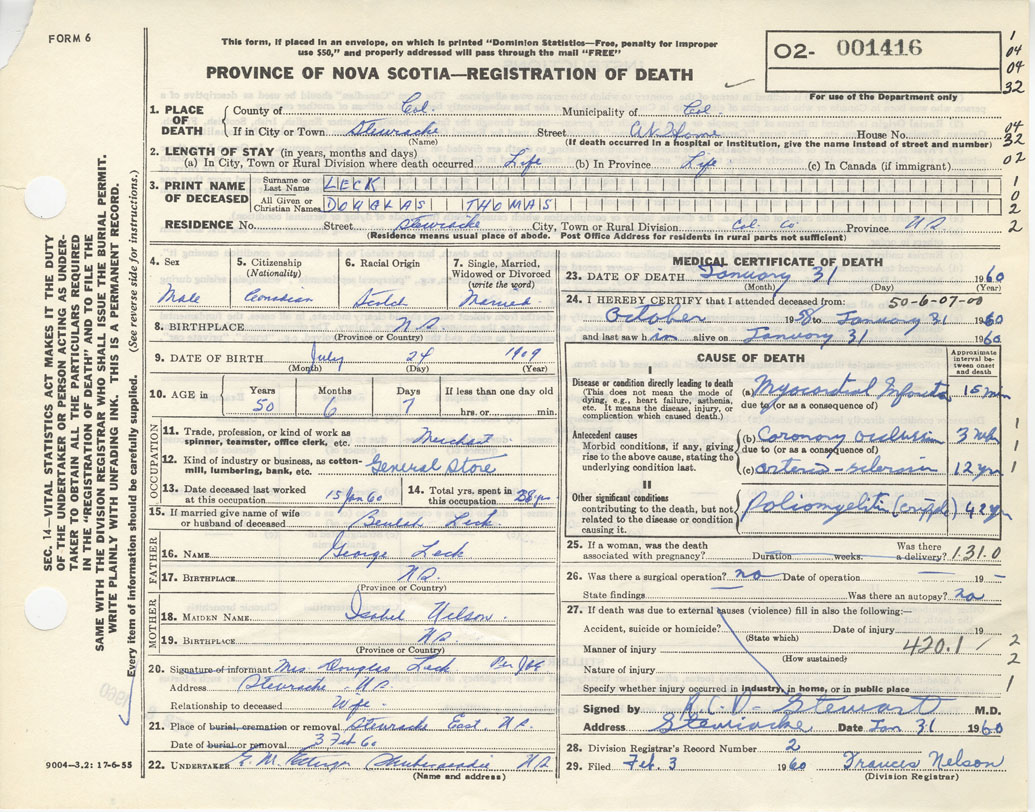 FORM 6
This form, if placed in an envelope, on which is printed "Dominion Statistics—Free, penalty for improper
use $50," and properly addressed will pass through the mail "FREE"
PROVINCE OF NOVA SCOTIA—REGISTRATION OF DEATH
O2- 001416
For use of the Department only
1
04
04
32
1. PLACE OF DEATH
County of Col. Municipality of Col.
If in City or Town Stewiacke Street At Home House No.
(Name) (If death occurred in a hospital or institution, give the name instead of street and number)
04
32
2. LENGTH OF STAY (in years, months and days)
(a) In City, Town or Rural Division where death occurred Life (b) In Province Life (c) In Canada (if immigrant)
02
3. PRINT NAME OF DECEASED
Surname or Last Name LECK
All Given or Christian Names DOUGLAS THOMAS
1
0
2
RESIDENCE No. Street Stewiacke City, Town or Rural Division Col. Co Province N.S.
(Residence means usual place of abode. Post Office Address for residents in rural parts not sufficient)
2
SEC. 14—VITAL STATISTICS ACT MAKES IT THE DUTY
OF THE UNDERTAKER OR PERSON ACTING AS UNDER-
TAKER TO OBTAIN ALL THE PARTICULARS REQUIRED
IN THE "REGISTRATION OF DEATH" AND TO FILE THE
SAME WITH THE DIVISION REGISTRAR WHO SHALL ISSUE THE BURIAL PERMIT.
WRITE PLAINLY WITH UNFADING INK. THIS IS A PERMANENT RECORD.
Every item of information should be carefully supplied. (See reverse side for instructions.)
4. Sex
Male
5. Citizenship
(Nationality)
Canadian
6. Racial Origin
Scotch
7. Single, Married,
Widowed or Divorced
(write the word)
Married
8. BIRTHPLACE N.S.
(Province or Country)
9. DATE OF BIRTH July 24 1909
(Month) (Day) (Year)
10. AGE in
Years Months Days If less than one day old
50 6 7 hrs. or min.
OCCUPATION
11. Trade, profession, or kind of work as
spinner, teamster, office clerk, etc. Merchant
12. Kind of industry or business, as cotton-
mill, lumbering, bank, etc. General Store
13. Date deceased last worked
at this occupation 15 Jan 60
14. Total yrs. spent in
this occupation 28 yrs
15. If married give name of wife
or husband of deceased Beulah Leck
FATHER
16. NAME George Leck
17. BIRTHPLACE N.S.
(Province or Country)
MOTHER
18. MAIDEN NAME Isabel Nelson
19. BIRTHPLACE N.S.
(Province or Country)
20. Signature of informant Mrs. Douglas Leck Per
Address Stewiacke N.S.
Relationship to deceased Wife
21. Place of burial, cremation or removal Stewiacke East, N.S.
Date of burial or removal 3 Feb 60
22. UNDERTAKER E. M. Shubenacadie N.S.
(Name and address)
9004—3.2: 17-6-55
MEDICAL CERTIFICATE OF DEATH
23. DATE OF DEATH January 31 1960
(Month) (Day) (Year)
24. I HEREBY CERTIFY that I attended deceased from: 50-6-07-00
October 1958 to January 31 1960
and last saw him alive on January 31 1960
CAUSE OF DEATH
Approximate
interval be-
tween onset
and death
I
Disease or condition directly leading to death
(This does not mean the mode of
dying, e.g., heart failure, asthenia,
etc. It means the disease, injury, or
complication which caused death.)
(a) Myocardial Infarction 15 min
due to (or as a consequence of)
Antecedent causes
Morbid conditions, if any, giving
rise to the above cause, stating the
underlying condition last.
(b) Coronary occlusion 3 wk
due to (or as a consequence of)
(c) arterio-sclerosis 12 yrs
1
1
1
II
Other significant conditions
contributing to the death, but not
related to the disease or condition
causing it.
Poliomyelitis (cripple) 42 yrs
1
25. If a woman, was the death
associated with pregnancy? Duration weeks. Was there
a delivery? 1.31.0
26. Was there a surgical operation? no Date of operation 19
State findings Was there an autopsy? no
27. If death was due to external causes (violence) fill in also the following:—
Accident, suicide or homicide? Date of injury 19
(State which)
Manner of injury 420.1 / 2
(How sustained)
2
Nature of injury
Specify whether injury occurred in industry, in home, or in public place 1
Signed by R. C. D. Stewart M.D.
Address Stewiacke Date Jan 31 1960
28. Division Registrar's Record Number 2
29. Filed Feb. 3 1960 Frances Nelson
(Division Registrar)